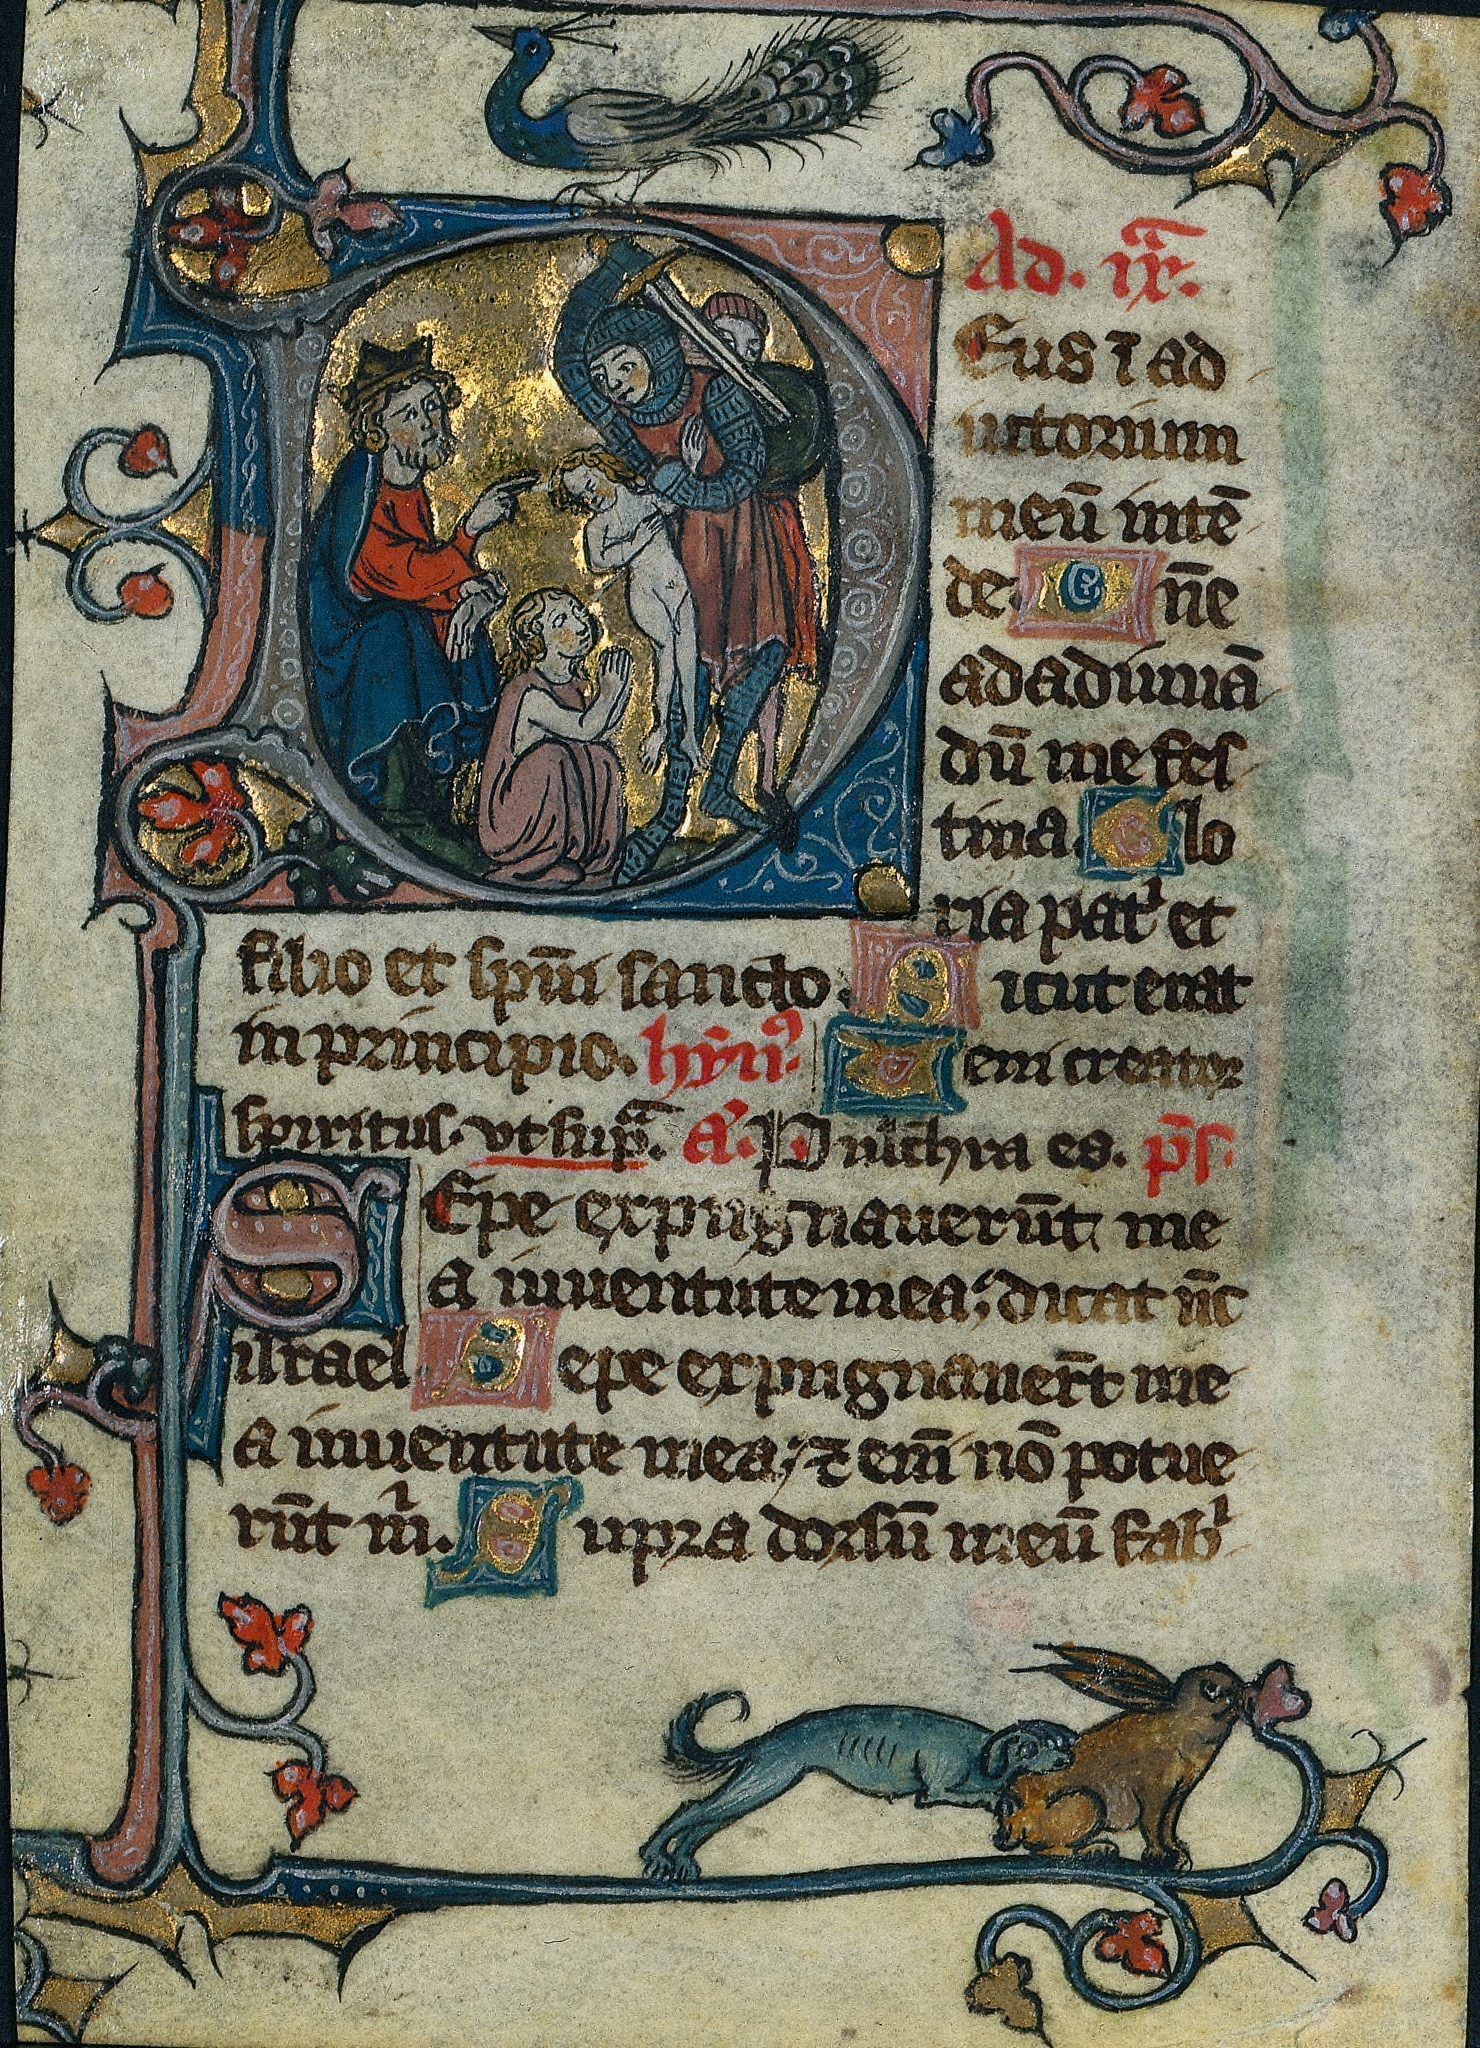 Ad. ix.
Eus ⁊ ad
iutorium
meū intē
de. D n̄e
ad adiuuā
dū me fes
tina. G lo
ria pat' et
filio et sp̄ui sancto. S icut erat
in principio. hȳn' V eni creator
spiritus. vt sup̄. a'. Pulchra es. p̄s.
S Epe expugnauerūt me
a iuuentute mea; dicat n̄c
israel S epe expugnauer̄t me
a iuuentute mea; ⁊ eni̅ nō potue
rūt m̓. S upra dorsū meū fab'